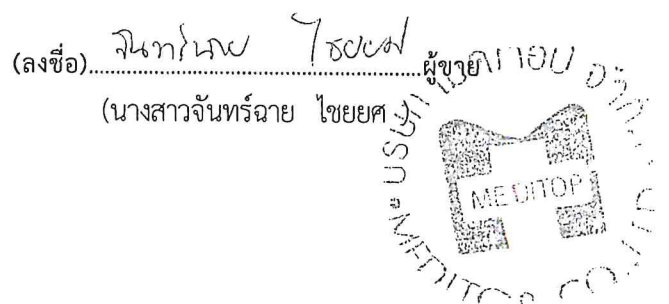 (ลงชื่อ)..........จันทร์ฉาย ไชยยศ..........ผู้ขาย
(นางสาวจันทร์ฉาย ไชยยศ
MEDITOP